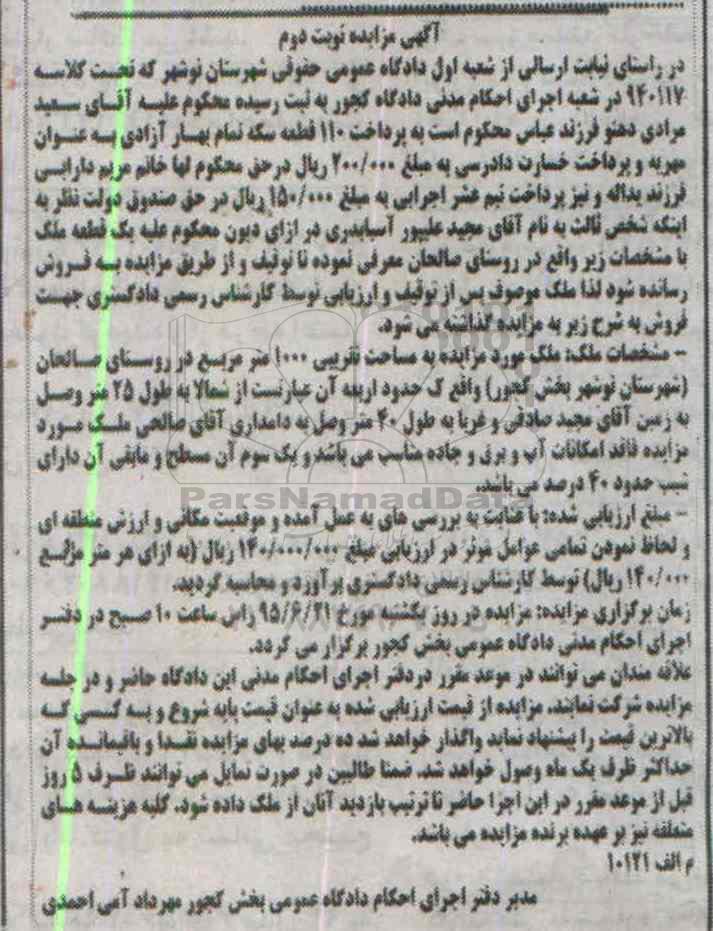 آگهی مزایده نوبت دوم
در راستای نیابت ارسالی از شعبه اول دادگاه عمومی حقوقی شهرستان نوشهر که تحت کلاسه
۹۴۰۱۱۷ در شعبه اجرای احکام مدنی دادگاه کجور به ثبت رسیده محکوم علیه آقای سعید
مرادی دهنو فرزند عباس محکوم است به پرداخت ۱۱۰ قطعه سکه تمام بهار آزادی به عنوان
مهریه و پرداخت خسارت دادرسی به مبلغ ۲۰۰/۰۰۰ ریال درحق محکوم لها خانم مریم دارابی
فرزند یداله و نیز پرداخت نیم عشر اجرایی به مبلغ ۱۵۰/۰۰۰ ریال در حق صندوق دولت نظر به
اینکه شخص ثالث به نام آقای مجید علیپور آسیابدری در ازای دیون محکوم علیه یک قطعه ملک
با مشخصات زیر واقع در روستای صالحان معرفی نموده تا توقیف و از طریق مزایده به فروش
رسانده شود لذا ملک موصوف پس از توقیف و ارزیابی توسط کارشناس رسمی دادگستری جهت
فروش به شرح زیر به مزایده گذاشته می شود.
- مشخصات ملک: ملک مورد مزایده به مساحت تقریبی ۱۰۰۰ متر مربع در روستای صالحان
(شهرستان نوشهر بخش کجور) واقع ک حدود اربعه آن عبارتست از شمالا به طول ۲۵ متر وصل
به زمین آقای مجید صادقی و غربا به طول ۴۰ متر وصل به دامداری آقای صالحی ملک مورد
مزایده فاقد امکانات آب و برق و جاده مناسب می باشد و یک سوم آن مسطح و مابقی آن دارای
شیب حدود ۴۰ درصد می باشد.
ParsNamadData
- مبلغ ارزیابی شده: با عنایت به بررسی های به عمل آمده و موقعیت مکانی و ارزش منطقه ای
و لحاظ نمودن تمامی عوامل موثر در ارزیابی مبلغ ۱۴۰/۰۰۰/۰۰۰ ریال (به ازای هر متر مربع
۱۴۰/۰۰۰ ریال) توسط کارشناس رسمی دادگستری برآورد و محاسبه گردید.
زمان برگزاری مزایده: مزایده در روز یکشنبه مورخ ۹۵/۶/۲۱ راس ساعت ۱۰ صبح در دفتر
اجرای احکام مدنی دادگاه عمومی بخش کجور برگزار می گردد.
علاقه مندان می توانند در موعد مقرر دردفتر اجرای احکام مدنی این دادگاه حاضر و در جلسه
مزایده شرکت نمایند. مزایده از قیمت ارزیابی شده به عنوان قیمت پایه شروع و به کسی که
بالاترین قیمت را پیشنهاد نماید واگذار خواهد شد ده درصد بهای مزایده نقدا و باقیمانده آن
حداکثر ظرف یک ماه وصول خواهد شد. ضمنا طالبین در صورت تمایل می توانند ظرف ۵ روز
قبل از موعد مقرر در این اجرا حاضر تا ترتیب بازدید آنان از ملک داده شود. کلیه هزینه های
متعلقه نیز بر عهده برنده مزایده می باشد.
م الف ۱۰۱۲۱
مدیر دفتر اجرای احکام دادگاه عمومی بخش کجور مهرداد آمی احمدی